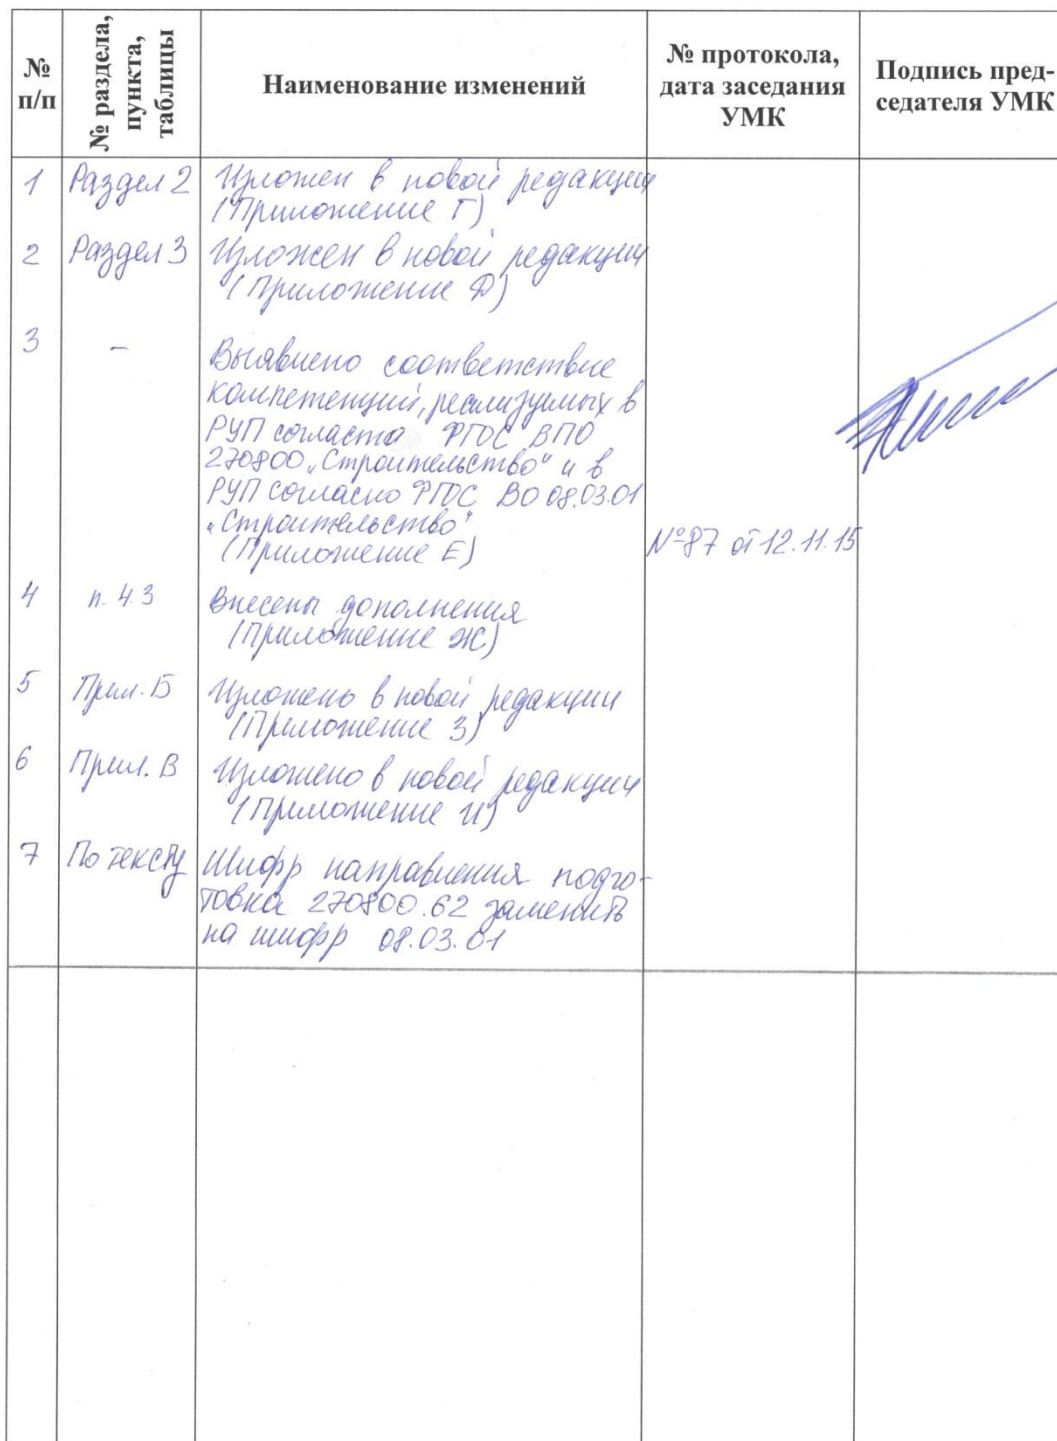 №
п/п
№ раздела,
пункта,
таблицы
Наименование изменений
№ протокола,
дата заседания
УМК
Подпись пред-
седателя УМК
1 Раздел 2 Изложен в новой редакции
(Приложение Г)
2 Раздел 3 Изложен в новой редакции
(Приложение Д)
3 – Выявлено соответствие
компетенций, реализуемых в
РУП согласно ФГОС ВПО
270800 „Строительство“ и в
РУП согласно ФГОС ВО 08.03.01
„Строительство“
(Приложение Е)
№87 от 12.11.15
4 п. 4.3 Внесены дополнения
(Приложение Ж)
5 Прил. Б Изложено в новой редакции
(Приложение З)
6 Прил. В Изложено в новой редакции
(Приложение И)
7 По тексту Шифр направления подго-
товка 270800.62 заменить
на шифр 08.03.01